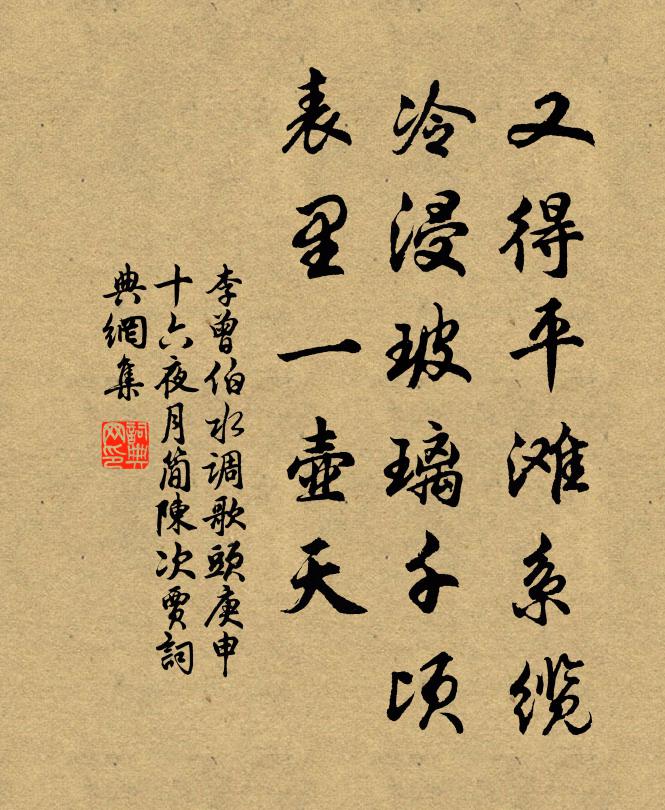 又得平滩系缆
冷浸玻璃千顷
表里一壶天
李曾伯水调歌頭庚申
十六夜月简陳次贾詞
典網集
詞典
网印